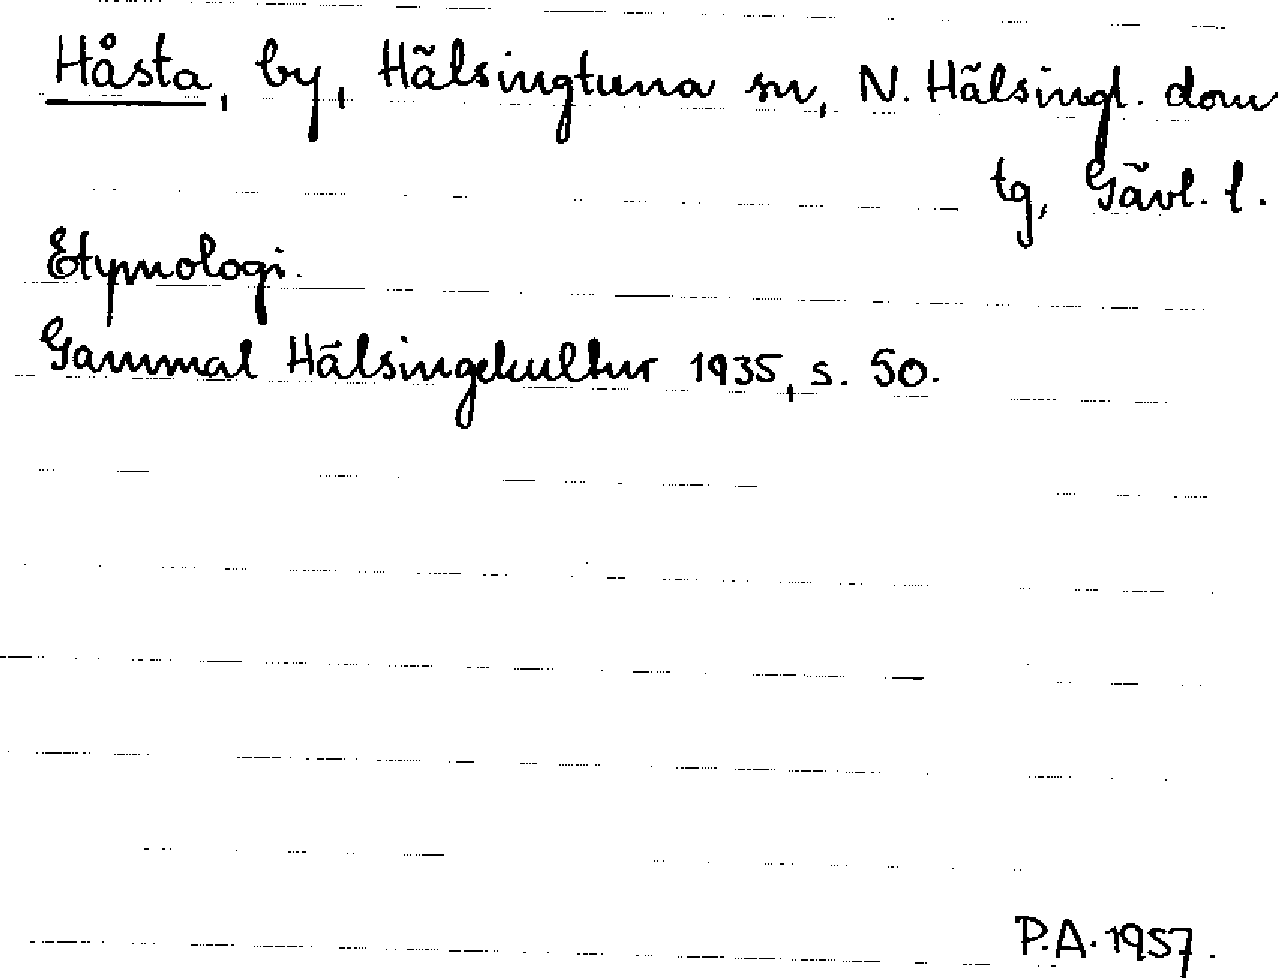 Håsta, by, Hälsingtuna sn, N. Hälsingl. dom
tg, Gävl. l.
Etymologi.
Gammal Hälsingekultur 1935, s. 50.
P.A. 1957.